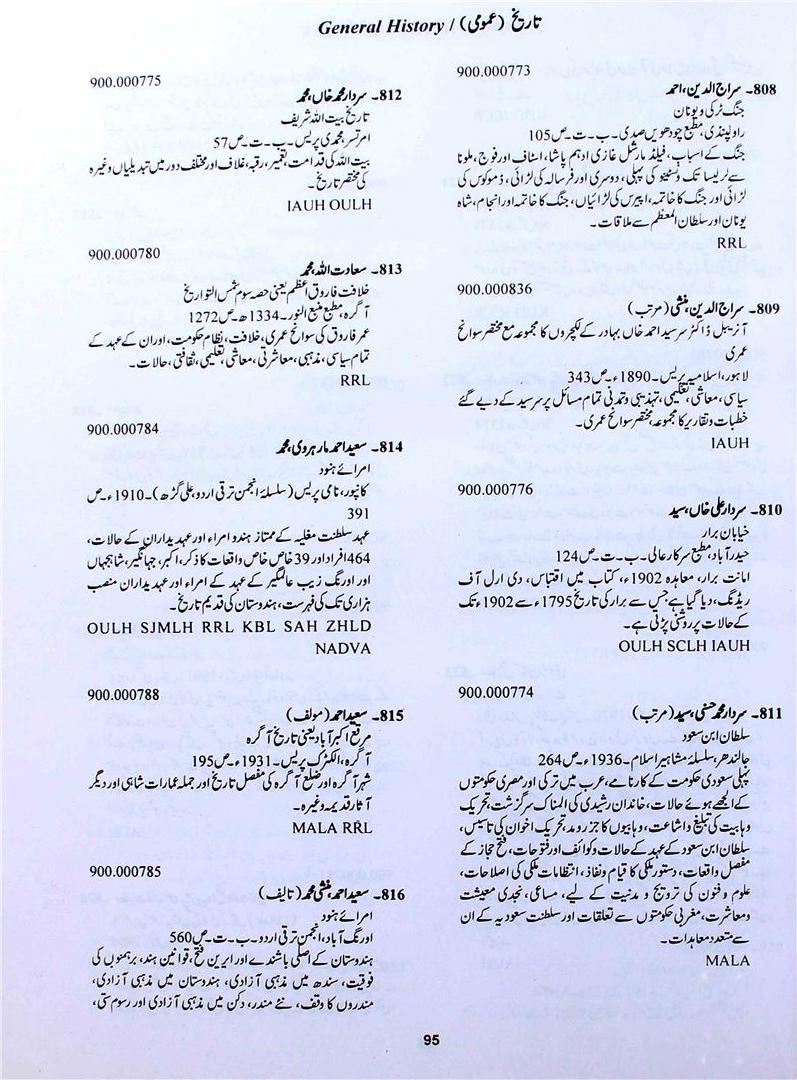 تاریخ (عمومی) / General History
900.000773
808۔ سراج الدین، احمد
جنگ ٹرکی و یونان
راولپنڈی، مطبع چودھویں صدی۔ ب۔ت۔ص105
جنگ کے اسباب، فیلڈ مارشل غازی ادہم پاشا، اسٹاف اور فوج، ملونا
سے ٹریسا تک دشنیو کی پہلی، دوسری اور فرسالہ کی لڑائی، ذموکوس کی
لڑائی اور جنگ کا خاتمہ، اپیرس کی لڑائیاں، جنگ کا خاتمہ اور انجام، شاہ
یونان اور سلطان المعظم سے ملاقات۔
RRL
900.000836
809۔ سراج الدین، منشی (مرتب)
آنریبل ڈاکٹر سرسید احمد خاں بہادر کے لکچروں کا مجموعہ مع مختصر سوانح
عمری
لاہور، اسلامیہ پریس۔1890ء۔ص343
سیاسی، معاشی، تعلیمی، تہذیبی و تمدنی تمام مسائل پر سرسید کے دیے گئے
خطبات و تقاریر کا مجموعہ، مختصر سوانح عمری۔
IAUH
900.000776
810۔ سردار علی خاں، سید
خیابان برار
حیدرآباد، مطبع سرکار عالی۔ب۔ت۔ص124
امانت برار، معاہدہ 1902ء، کتاب میں اقتباس، دی ارل آف
ریڈنگ، دیا گیا ہے جس سے برار کی تاریخ 1795ء سے 1902ء تک
کے حالات پر روشنی پڑتی ہے۔
OULH SCLH IAUH
900.000774
811۔ سردار محمد حسنی، سید (مرتب)
سلطان ابن سعود
جالندھر، سلسلۂ مشاہیر اسلام۔1936ء۔ص264
پہلی سعودی حکومت کے کارنامے، عرب میں ترکی اور مصری حکومتوں
کے الجھے ہوئے حالات، خاندان رشیدی کی المناک سرگزشت، تحریک
وہابیت کی تبلیغ و اشاعت، وہابیوں کا جزر و مد، تحریک اخوان کی تاسیس،
سلطان ابن سعود کے عہد کے حالات و کوائف اور فتوحات، فتح حجاز کے
مفصل واقعات، دستور ملکی کا قیام و نفاذ، انتظامات ملکی کی اصلاحات،
علوم و فنون کی ترویج و مدنیت کے لیے، مساعی، نجدی معیشت
و معاشرت، مغربی حکومتوں سے تعلقات اور سلطنت سعودیہ کے ان
سے متعدد معاہدات۔
MALA
900.000775
812۔ سردار محمد خاں، محمد
تاریخ بیت اللہ شریف
امرتسر، محمدی پریس۔ب۔ت۔ص57
بیت اللہ کی قدامت، تعمیر، رقبہ، غلاف اور مختلف دور میں تبدیلیاں وغیرہ
کی مختصر تاریخ۔
IAUH OULH
900.000780
813۔ سعادت اللہ، محمد
خلافت فاروق اعظم یعنی حصہ سوم شمس التواریخ
آگرہ، مطبع منبع النور۔1334ھ۔ص1272
عمر فاروق کی سوانح عمری، خلافت، نظام حکومت، اور ان کے عہد کے
تمام سیاسی، مذہبی، معاشرتی، معاشی، تعلیمی، ثقافتی، حالات۔
RRL
900.000784
814۔ سعید احمد مارہروی، محمد
امرائے ہنود
کانپور، نامی پریس (سلسلۂ انجمن ترقی اردو، علی گڑھ)۔1910ء۔ص
391
عہد سلطنت مغلیہ کے ممتاز ہندو امراء اور عہدیداران کے حالات،
464 افراد اور 39 خاص خاص واقعات کا ذکر، اکبر، جہانگیر، شاہجہاں
اور اورنگ زیب عالمگیر کے عہد کے امراء اور عہدیداران منصب
ہزاری تک کی فہرست، ہندوستان کی قدیم تاریخ۔
OULH SJMLH RRL KBL SAH ZHLD
NADVA
900.000788
815۔ سعید احمد (مولف)
مرقع اکبر آباد یعنی تاریخ آگرہ
آگرہ، الکٹرک پریس۔1931ء۔ص195
شہر آگرہ اور ضلع آگرہ کی مفصل تاریخ اور جملہ عمارات شاہی اور دیگر
آثار قدیمہ وغیرہ۔
MALA RRL
900.000785
816۔ سعید احمد، منشی محمد (تالیف)
امرائے ہنود
اورنگ آباد، انجمن ترقی اردو۔ب۔ت۔ص560
ہندوستان کے اصلی باشندے اور ایرین فتح، قوانین ہند، برہمنوں کی
فوقیت، سندھ میں مذہبی آزادی، ہندوستان میں مذہبی آزادی،
مندروں کا وقف، نئے مندر، دکن میں مذہبی آزادی اور رسوم ستی،
95